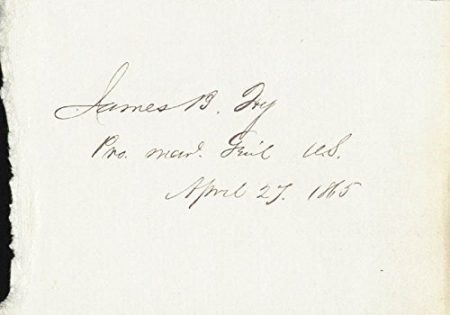 James B. Fry
Pro. Mar. Gen'l U.S.
April 27. 1865